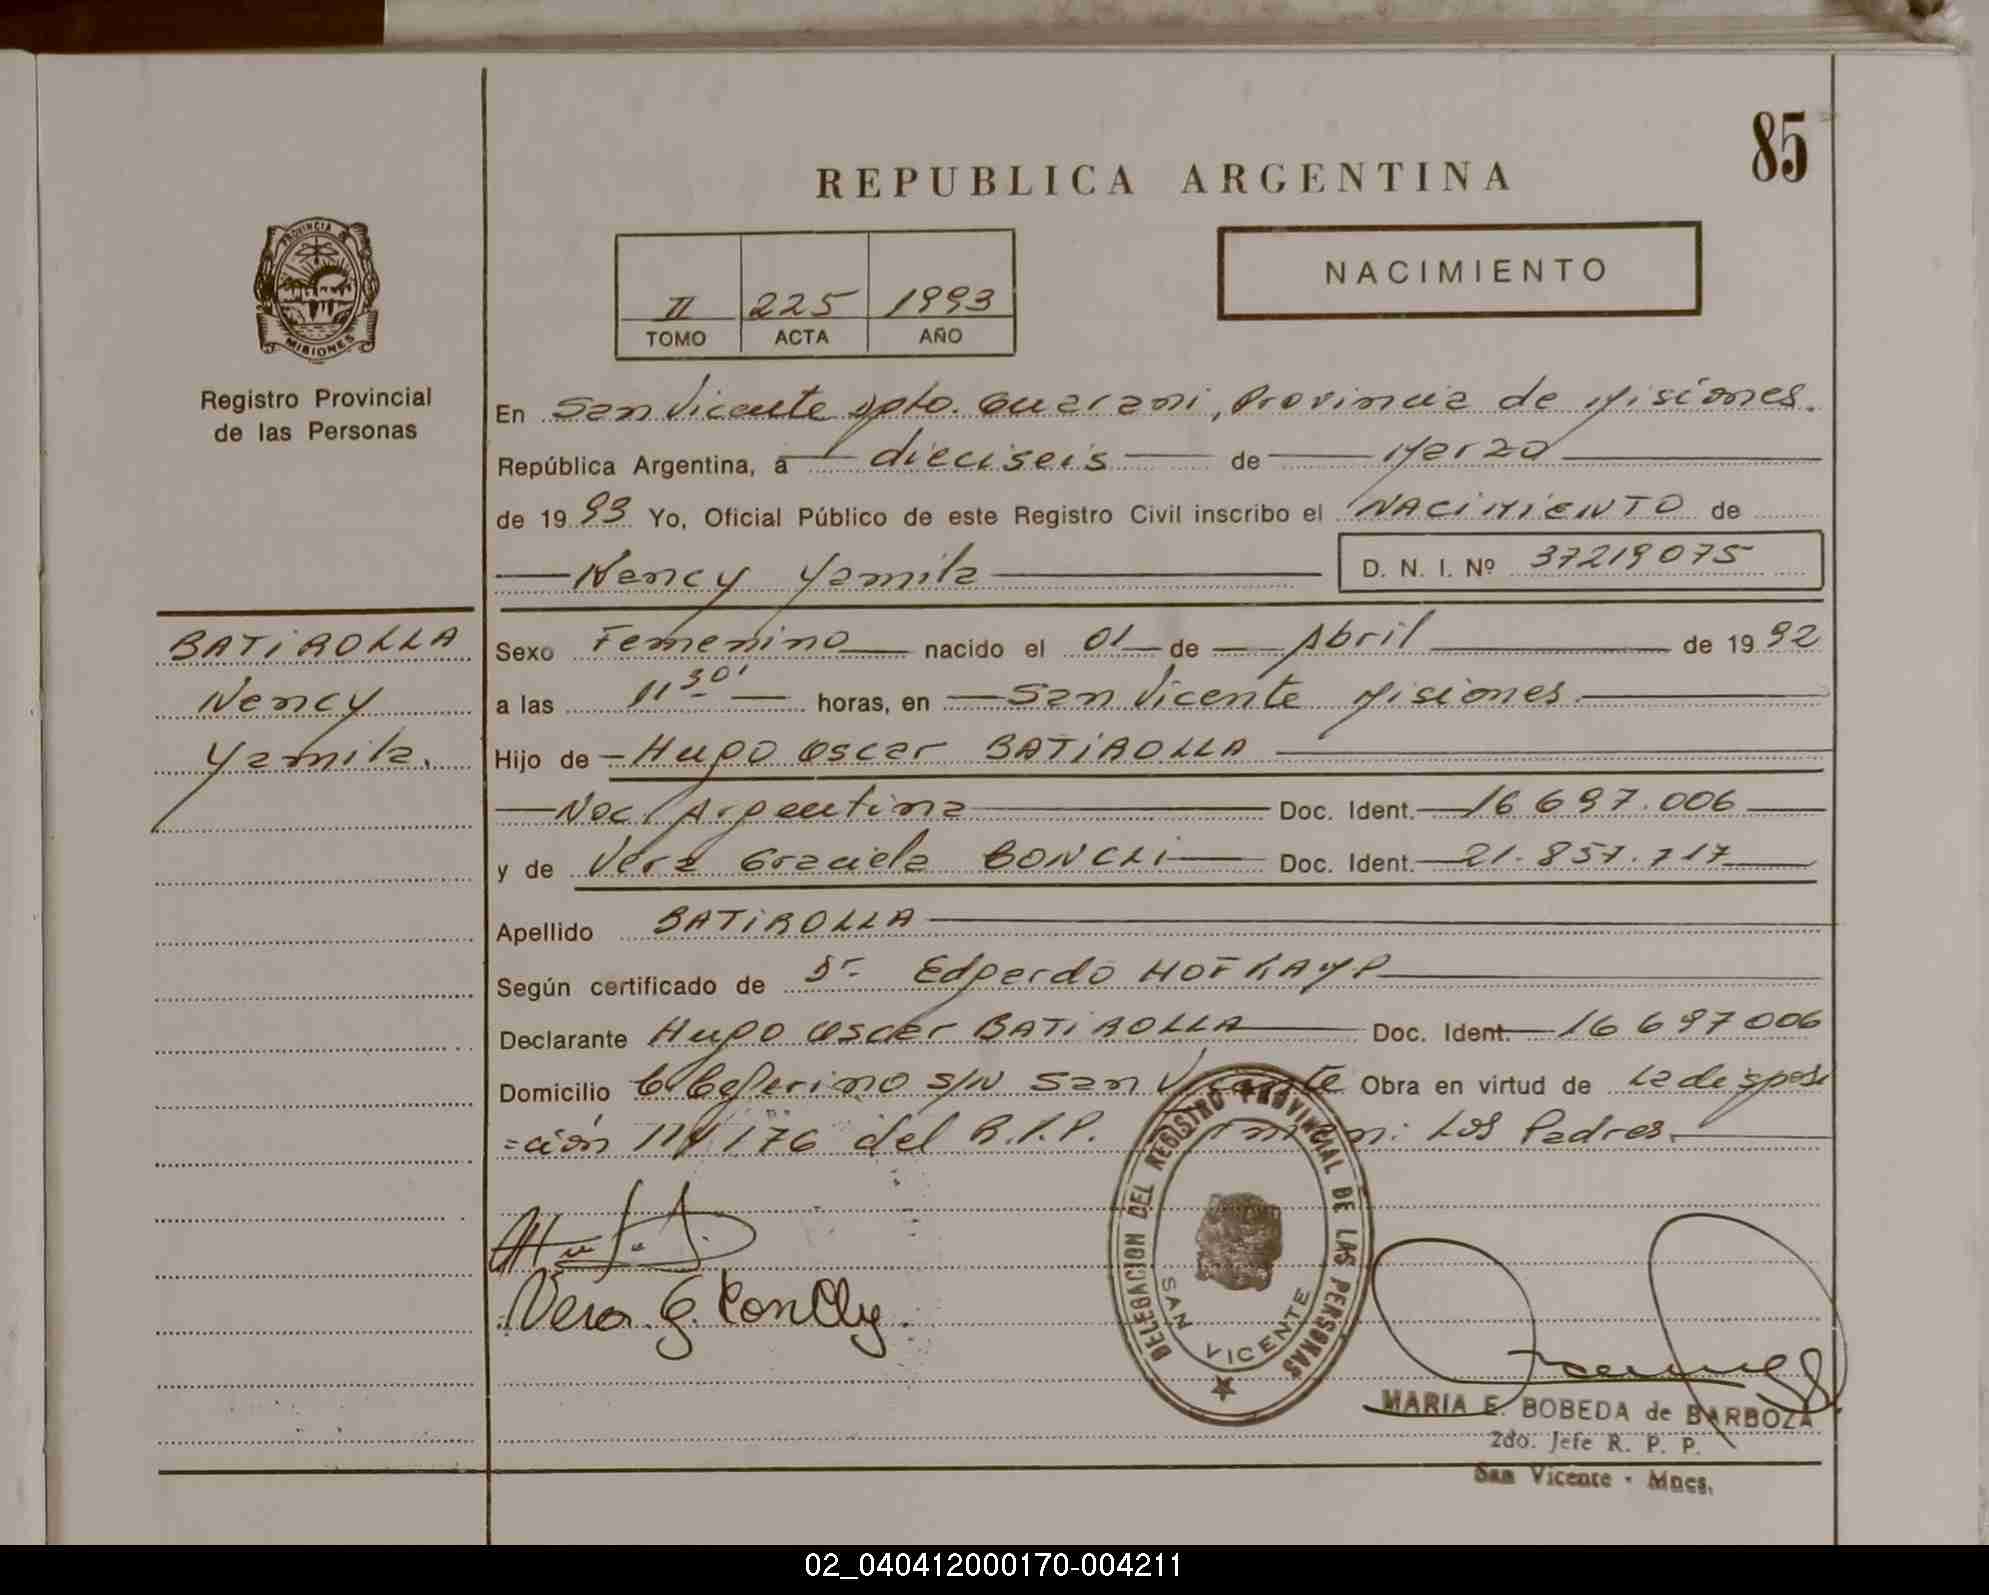 85
REPUBLICA ARGENTINA
PROVINCIA DE
MISIONES
Registro Provincial
de las Personas
II 225 1993
TOMO ACTA AÑO
NACIMIENTO
En San Vicente Dpto. Guarani, Provincia de Misiones.
República Argentina, a dieciseis de Marzo
de 1993 Yo, Oficial Público de este Registro Civil inscribo el NACIMIENTO de
Nancy Yamila D. N. I. Nº 37219075
BATIROLLA
Nancy
Yamila.
Sexo Femenino nacido el 01 de Abril de 1992
a las 11 30' horas, en San Vicente Misiones.
Hijo de Hugo Oscar BATIROLLA
Nac. Argentina Doc. Ident. 16 697.006
y de Vera Graciela Doc. Ident. 21.857.717
Apellido BATIROLLA
Según certificado de Dr. Edgardo
Declarante Hugo Oscar BATIROLLA Doc. Ident. 16 697 006
Domicilio Ceferino s/N San Vicente Obra en virtud de La disposi
=ción 114/176 del R.P.P. Firman: Los Padres.
Vera G.
DELEGACION DEL REGISTRO PROVINCIAL DE LAS PERSONAS
SAN VICENTE
MARIA E. BOBEDA de BARBOZA
2do. Jefe R. P. P.
San Vicente - Mnes.
02_040412000170-004211